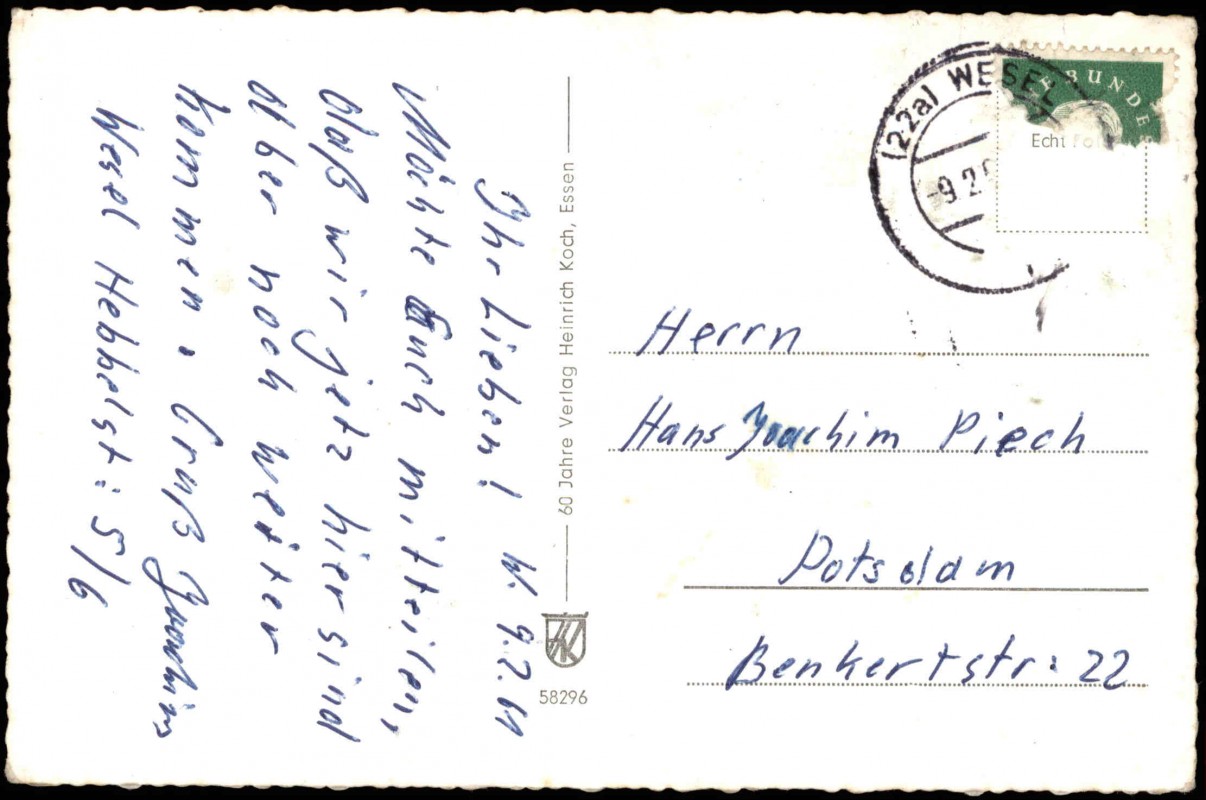 Ihr Lieben! W. 9.2.61
Möchte Euch mitteilen,
daß wir jetz hier sind
aber noch weiter
kommen. Gruß
Wesel Hebbelst: 5/6
60 Jahre Verlag Heinrich Koch, Essen
HK
58296
(22a) WESEL
-9.2.
BUNDES
Echt Fo
Herrn
Hans Joachim Piech
Potsdam
Benkertstr: 22